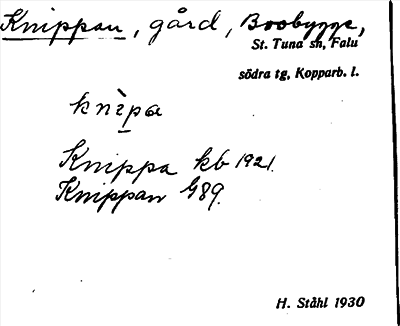 Knippan, gård, Bosbygge,
St. Tuna sn, Falu
södra tg, Kopparb. l.
knìpa
Knippa kb 1921.
Knippan G89.
H. Ståhl 1930